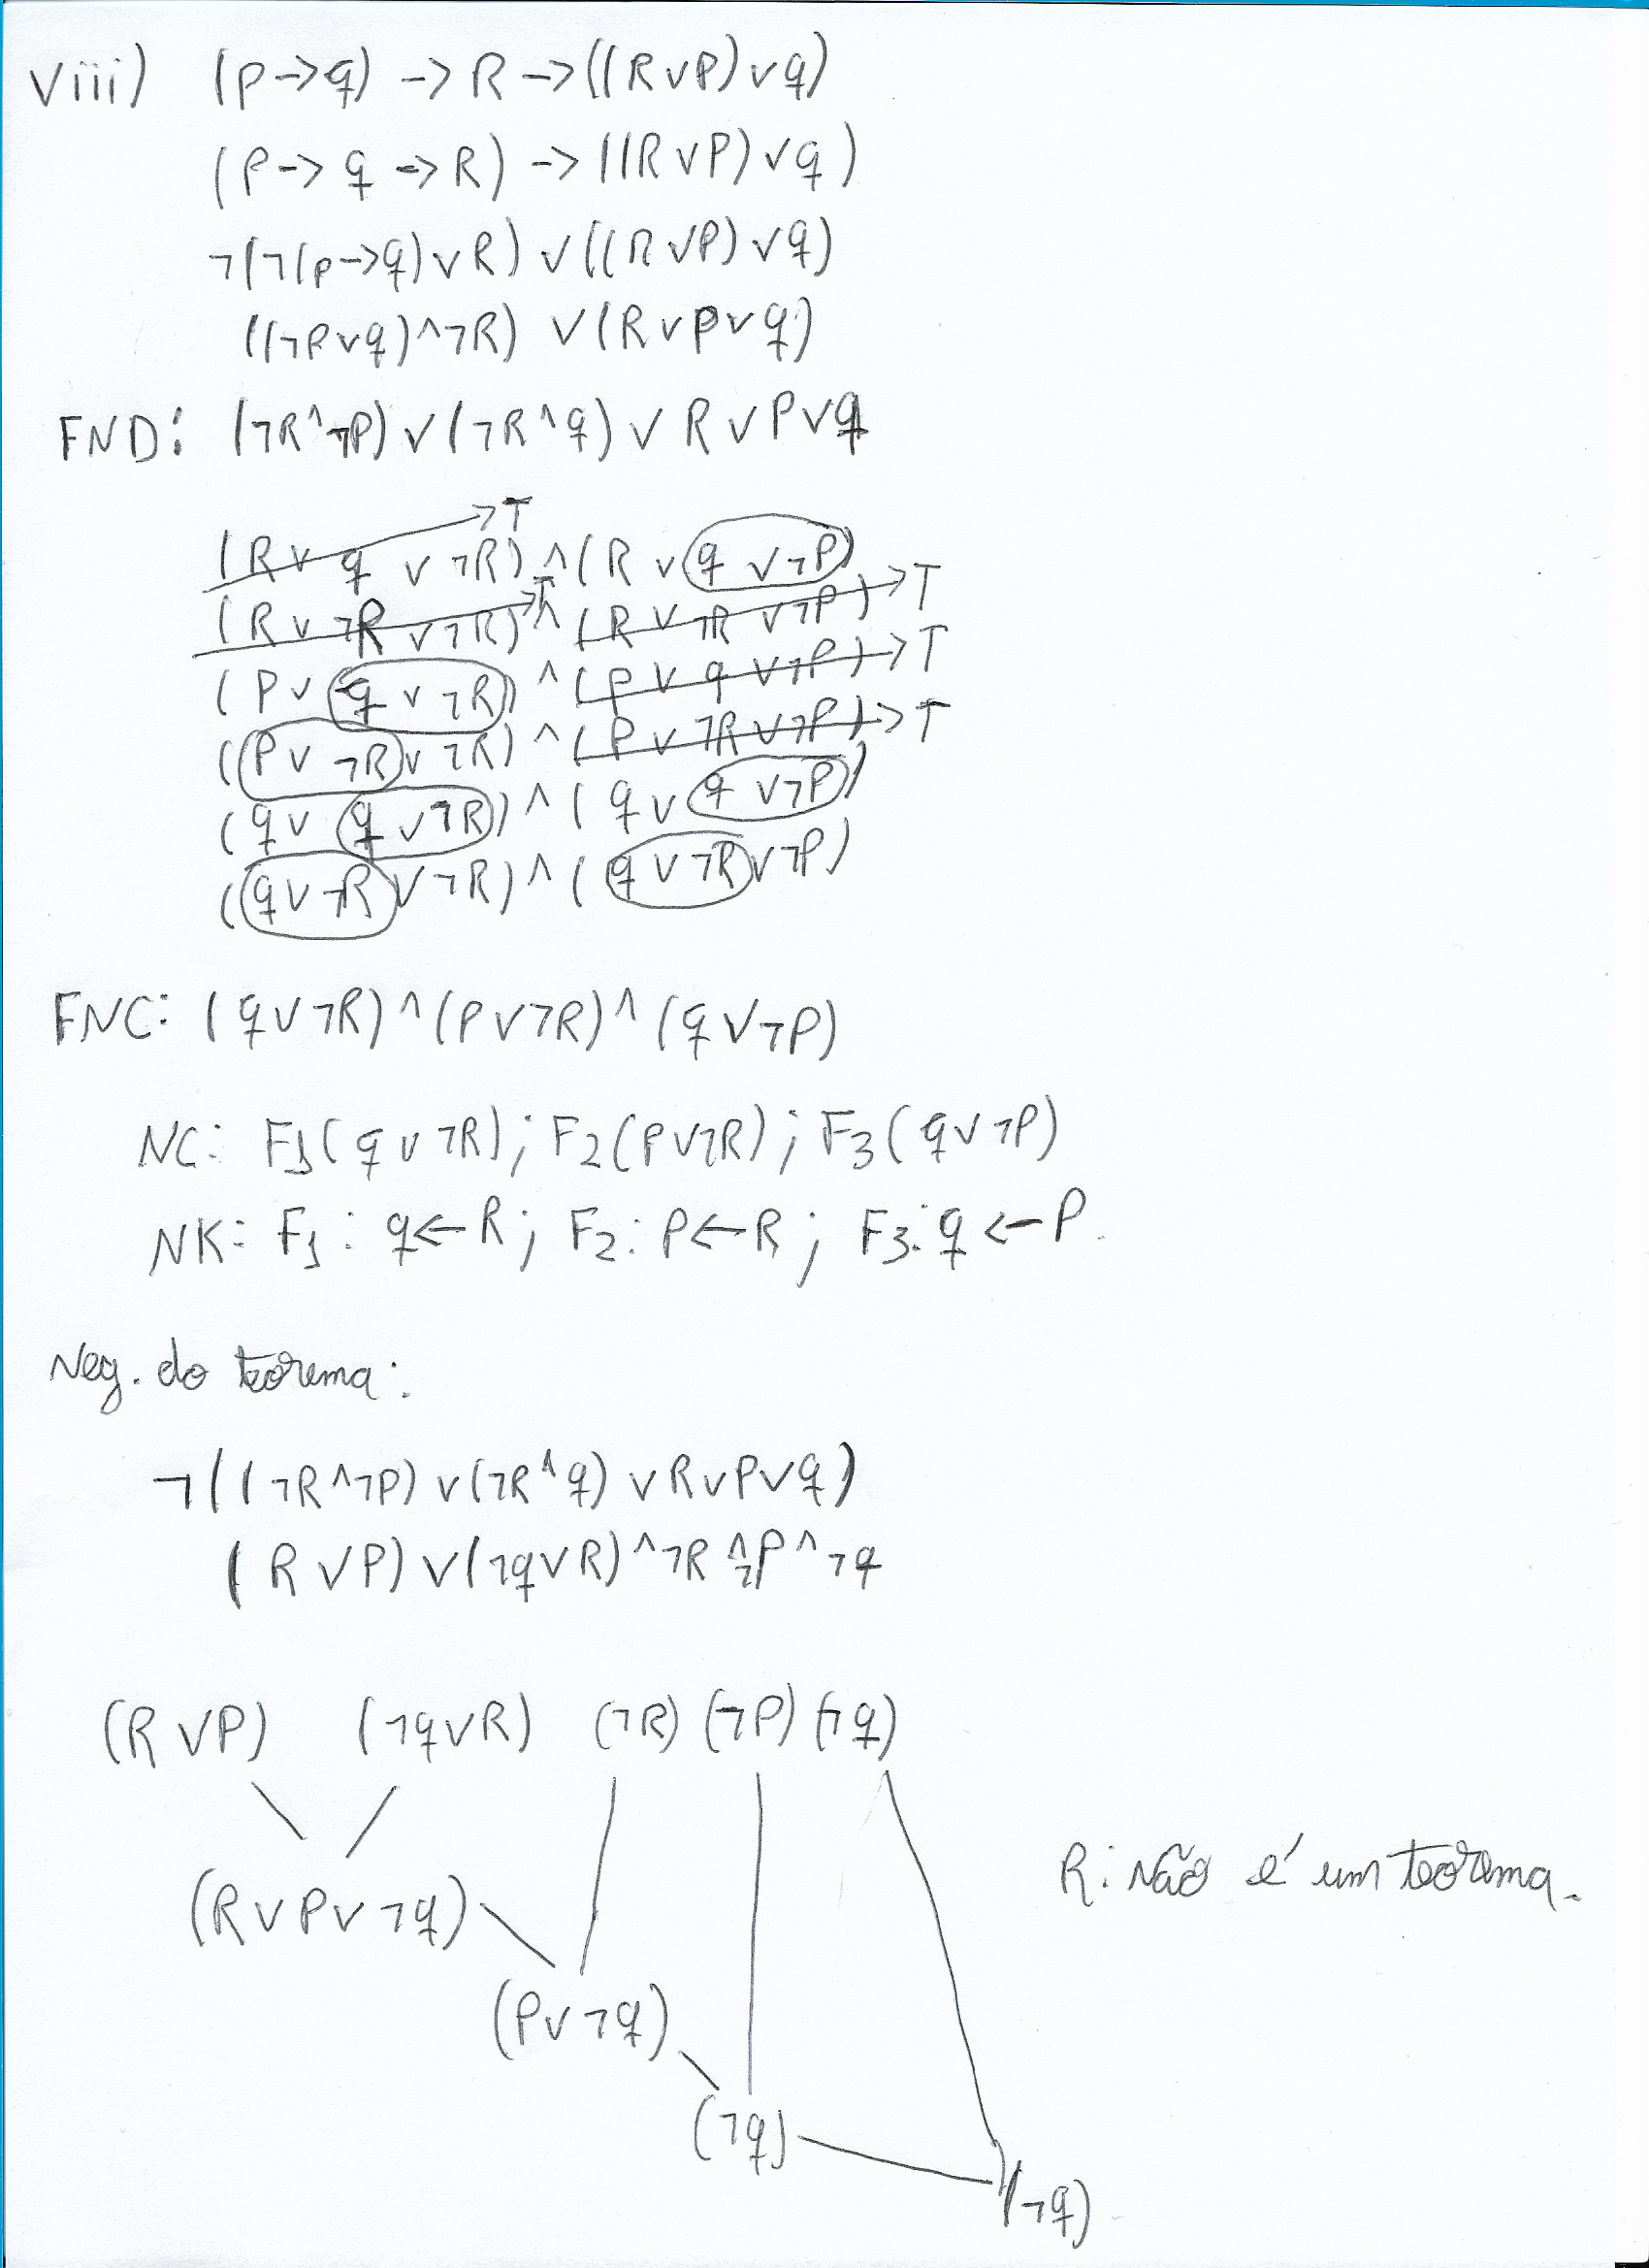 viii) (P->q) -> R ->((R∨P)∨q)
(P-> q -> R) -> ((R∨P)∨q)
¬(¬(p->q)∨R) ∨((R∨P)∨q)
((¬P∨q)^¬R) ∨(R∨P∨q)
FND: (¬R^¬P)∨(¬R^q)∨R∨P∨q
->T
(R∨ q ∨¬R)^(R∨(q∨¬P)
(R∨¬R∨¬R)->T^(R∨¬R∨¬P)->T
(P∨(q∨¬R))^(P∨q∨¬P)->T
((P∨¬R)∨¬R)^(P∨¬R∨¬P)->T
(q∨(q∨¬R))^(q∨(q∨¬P))
((q∨¬R)∨¬R)^((q∨¬R)∨¬P)
FNC: (q∨¬R)^(P∨¬R)^(q∨¬P)
NC: F1(q∨¬R); F2(P∨¬R); F3(q∨¬P)
NK: F1: q←R; F2: P←R; F3: q←P.
Neg. do teorema:
¬((¬R^¬P)∨(¬R^q)∨R∨P∨q)
(R∨P)∨(¬q∨R)^¬R^¬P^¬q
(R∨P) (¬q∨R) (¬R) (¬P) (¬q)
R: Não é um teorema.
(R∨P∨¬q)
(P∨¬q)
(¬q)
(¬q)